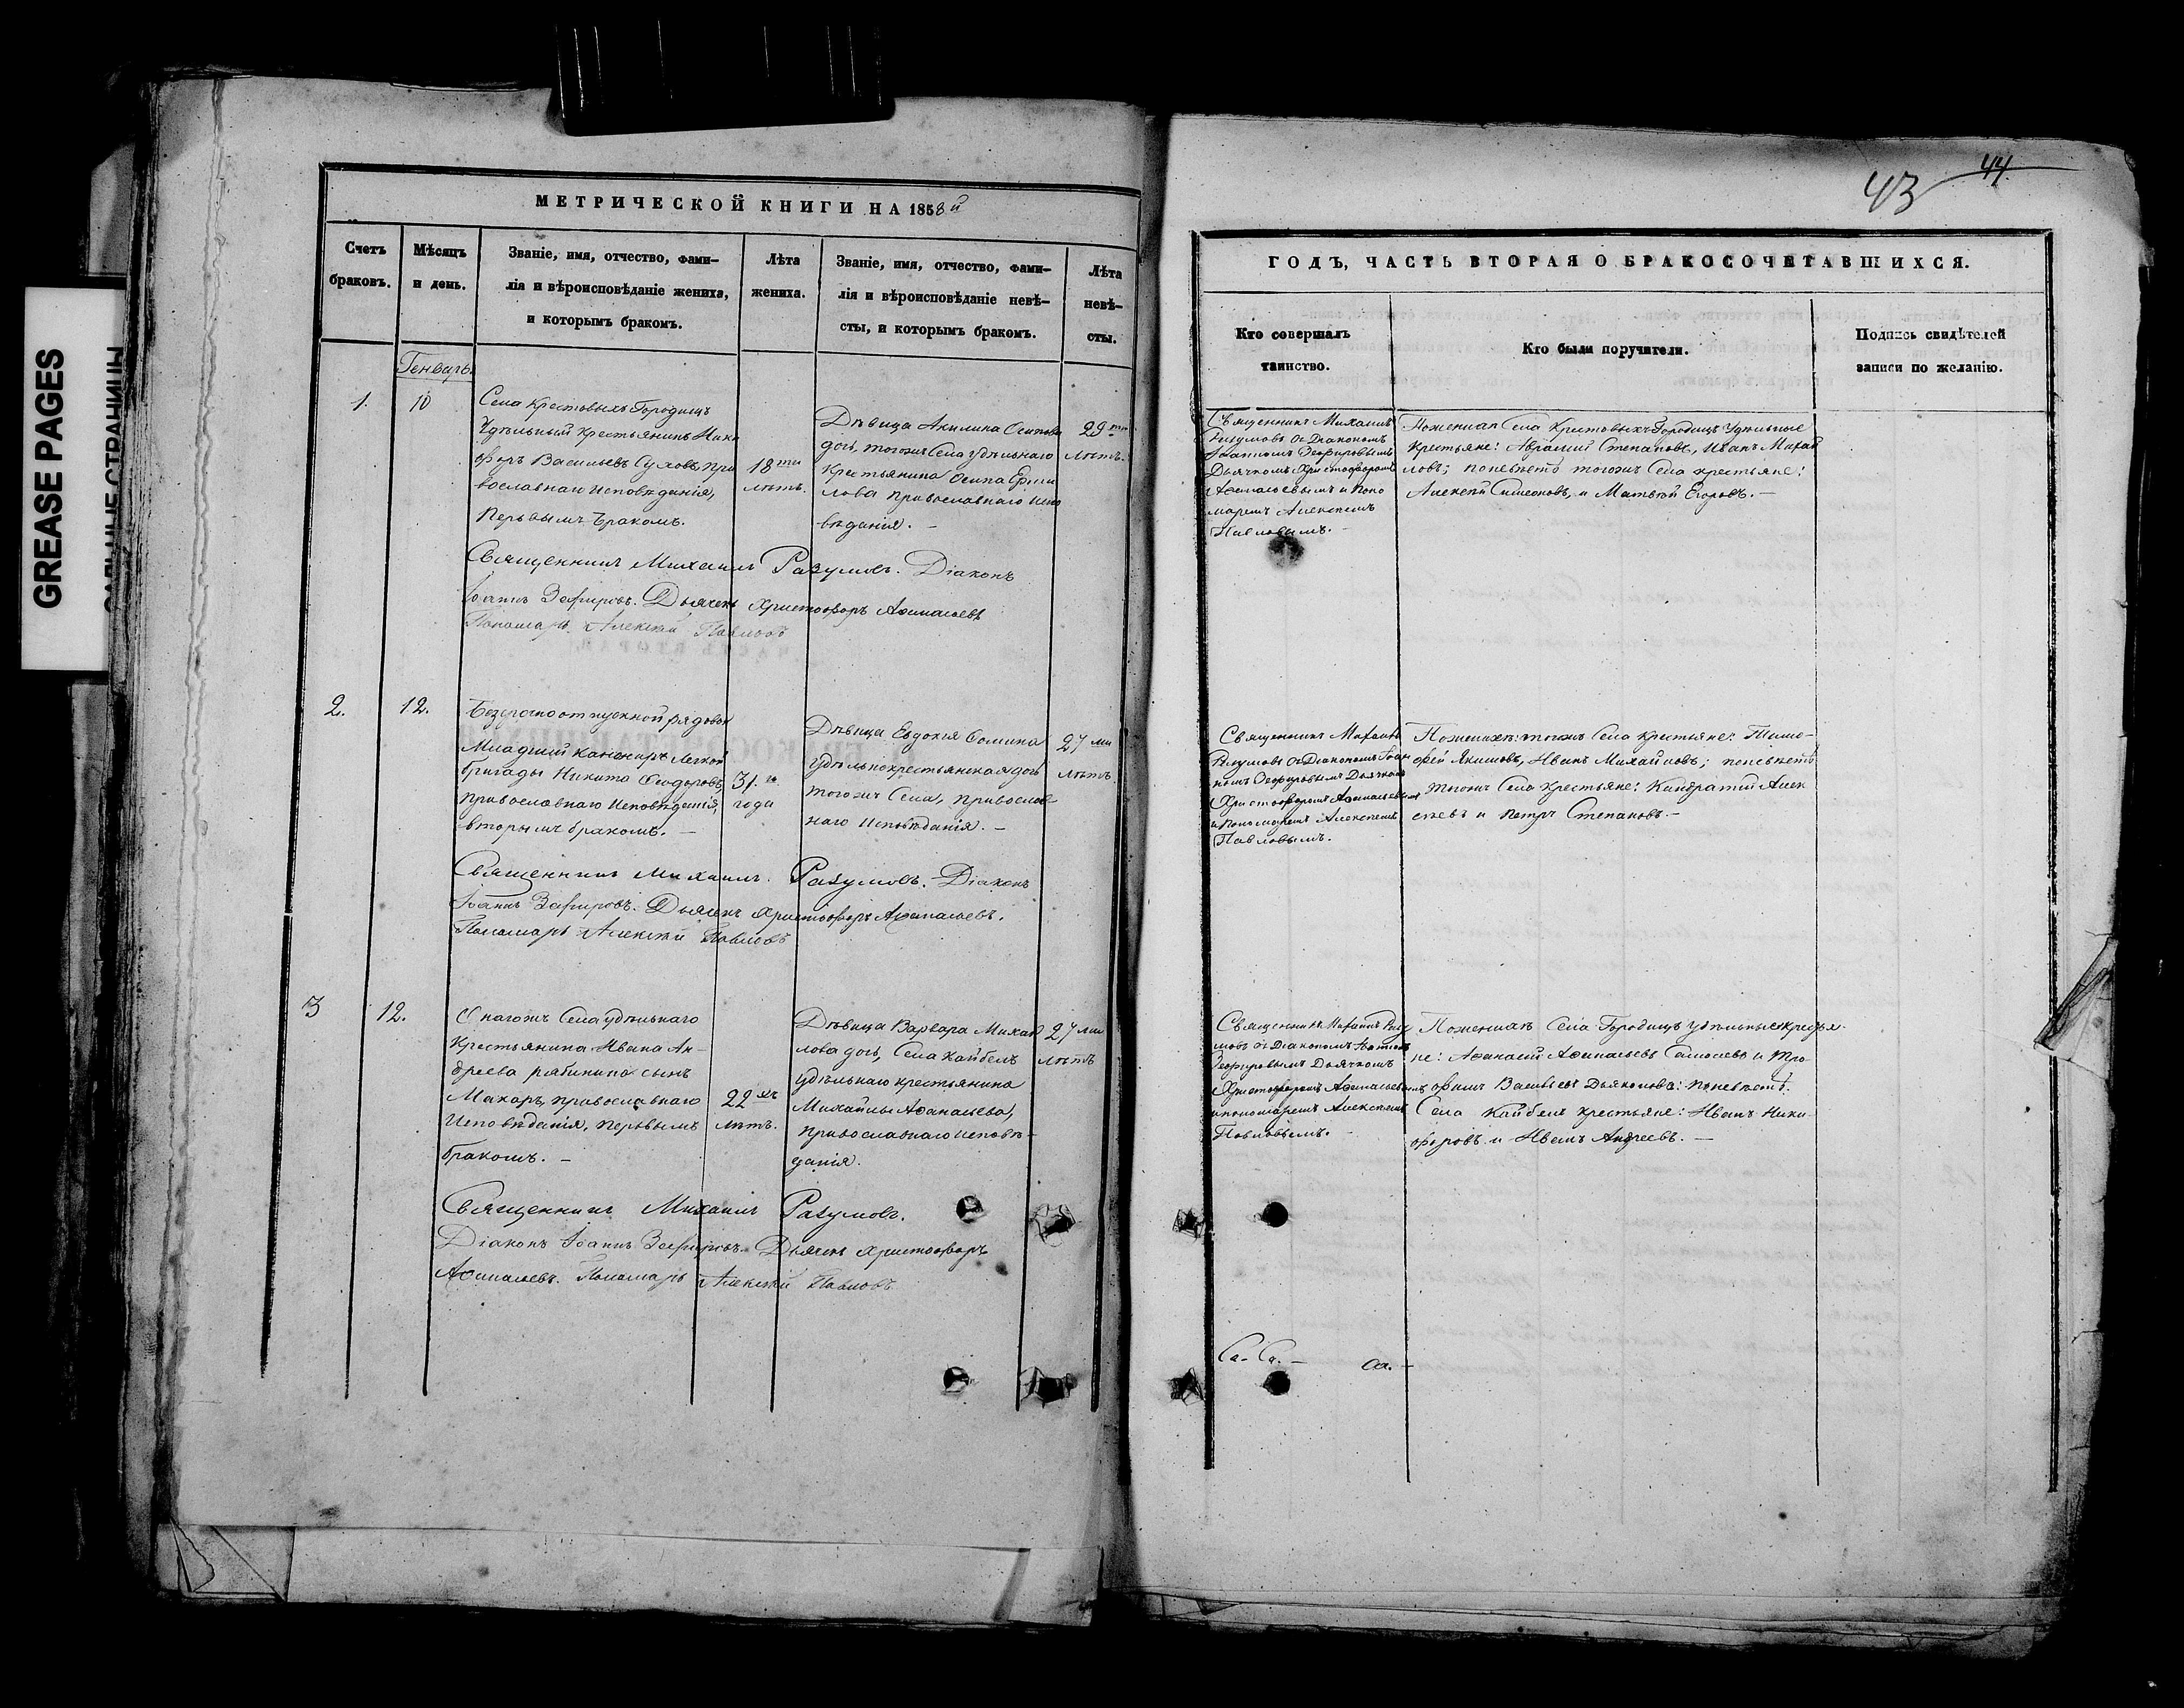 GREASE PAGES
МЕТРИЧЕСКОЙ КНИГИ НА 1858й
Счетъ браковъ.
Мѣсяцъ и день.
Званіе, имя, отчество, фами-
лія и вѣроисповѣданіе жениха,
и которымъ бракомъ.
Лѣта
жениха.
Званіе, имя, отчество, фами-
лія и вѣроисповѣданіе невѣ-
сты, и которымъ бракомъ.
Лѣта
невѣ-
сты.
Генварь
1.
10
Села Крестовыхъ Городищъ
Удѣльный крестьянинъ Ники
форъ Васильевъ Суховъ, пра
вославнаго исповѣданія,
первымъ бракомъ.
18ти
лѣтъ.
Дѣвица Акилина Осипова
дочь, тогожъ Села удѣльнаго
крестьянина Осипа
православнаго испо
вѣданія. –
29ти
лѣтъ.
Священникъ Михаилъ Разумовъ. Діаконъ
Іоаннъ Зефировъ. Дьячекъ Христофоръ Аѳанасьевъ
Пономарь Алексѣй Павловъ
2.
12.
Безсрочноотпускной рядовой
Младшій канониръ легкой
бригады Никита Ѳеодоровъ,
православнаго исповѣданія,
вторымъ бракомъ. –
31.го
года
Дѣвица Евдокія Ѳомина
удѣльнокрестьянская дочь
тогожъ Села, православ
наго исповѣданія. –
27ми
лѣтъ
Священникъ Михаилъ Разумовъ. Діаконъ
Іоаннъ Зефировъ. Дьячекъ Христофоръ Аѳанасьевъ.
Пономарь Алексѣй Павловъ
3
12.
Онагожъ Села удѣльнаго
крестьянина Ивана Ан-
дреева рябинина сынъ
Макаръ, православнаго
исповѣданія, первымъ
бракомъ. –
22хъ
лѣтъ.
Дѣвица Варвара Михай
лова дочь, Села Кайбелъ
удѣльнаго крестьянина
Михайлы Аѳанасьева,
православнаго исповѣ-
данія.
27ми
лѣтъ
Священникъ Михаилъ Разумовъ.
Діаконъ Іоаннъ Зефировъ. Дьячекъ Христофоръ
Аѳанасьевъ. Пономарь Алексѣй Павловъ
43
44
ГОДЪ, ЧАСТЬ ВТОРАЯ О БРАКОСОЧЕТАВШИХСЯ.
Кто совершалъ
таинство.
Кто были поручители.
Подпись свидѣтелей
записи по желанію.
Священникъ Михаилъ
Разумовъ съ Діакономъ
Іоанномъ Зефировымъ
Дьячкомъ Христофоромъ
Аѳанасьевымъ и поно
маремъ Алексѣемъ
Павловымъ. –
По женихѣ Села Крестовыхъ Городищъ Удѣльные
крестьяне: Авраамій Степановъ, Иванъ Михай
ловъ; по невѣстѣ тогожъ Села крестьяне:
Алексѣй Симеоновъ, и Матвѣй Егоровъ. –
Священникъ Михаилъ
Разумовъ съ Діакономъ Іоан
номъ Зефировымъ Дьячкомъ
Христофоромъ Аѳанасьевымъ
и пономаремъ Алексѣемъ
Павловымъ.
По женихѣ: тогожъ Села крестьяне: Тимо-
фей Якимовъ, Иванъ Михайловъ; по невѣстѣ
тогожъ Села крестьяне: Кандратій Алек
сѣевъ и Петръ Степановъ. –
Священникъ Михаилъ Разу
мовъ съ Діакономъ Іоанномъ
Зефировымъ Дьячкомъ
Христофоромъ Аѳанасьевымъ
и пономаремъ Алексѣемъ
Павловымъ. –
По женихѣ Села Городищъ удѣльные крестья-
не: Аѳанасій Аѳанасьевъ и Тро
фимъ Васильевъ Дьяконовъ: по невѣстѣ:
Села Кайбелъ крестьяне: Иванъ Ники-
форовъ и Иванъ Андреевъ. –